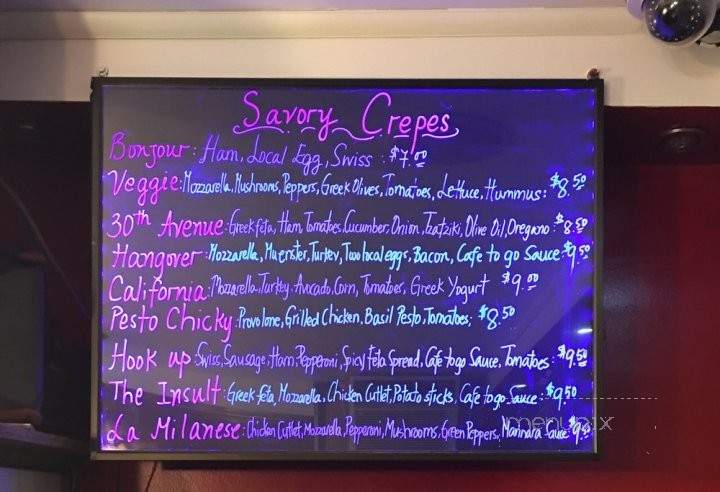 Savory Crepes
Bonjour: Ham, Local Egg, Swiss: $7.00
Veggie: Mozzarella, Mushrooms, Peppers, Greek Olives, Tomatoes, Lettuce, Hummus: $8.50
30th Avenue: Greek feta, Ham, Tomatoes, Cucumber, Onion, Tzatziki, Olive Oil, Oregano: $8.50
Hangover: Mozzarella, Muenster, Turkey, Two local eggs, Bacon, Cafe to go Sauce: $9.50
California: Mozzarella, Turkey, Avocado, Corn, Tomatoes, Greek Yogurt $9.00
Pesto Chicky: Provolone, Grilled Chicken, Basil Pesto, Tomatoes; $8.50
Hook up: Swiss, Sausage, Ham, Pepperoni, Spicy Feta Spread, Cafe to go Sauce, Tomatoes: $9.50
The Insult: Greek feta, Mozzarella, Chicken Cutlet, Potato sticks, Cafe to go Sauce: $9.50
La Milanese: Chicken Cutlet, Mozzarella, Pepperoni, Mushrooms, Green Peppers, Marinara Sauce $9.50
menupix